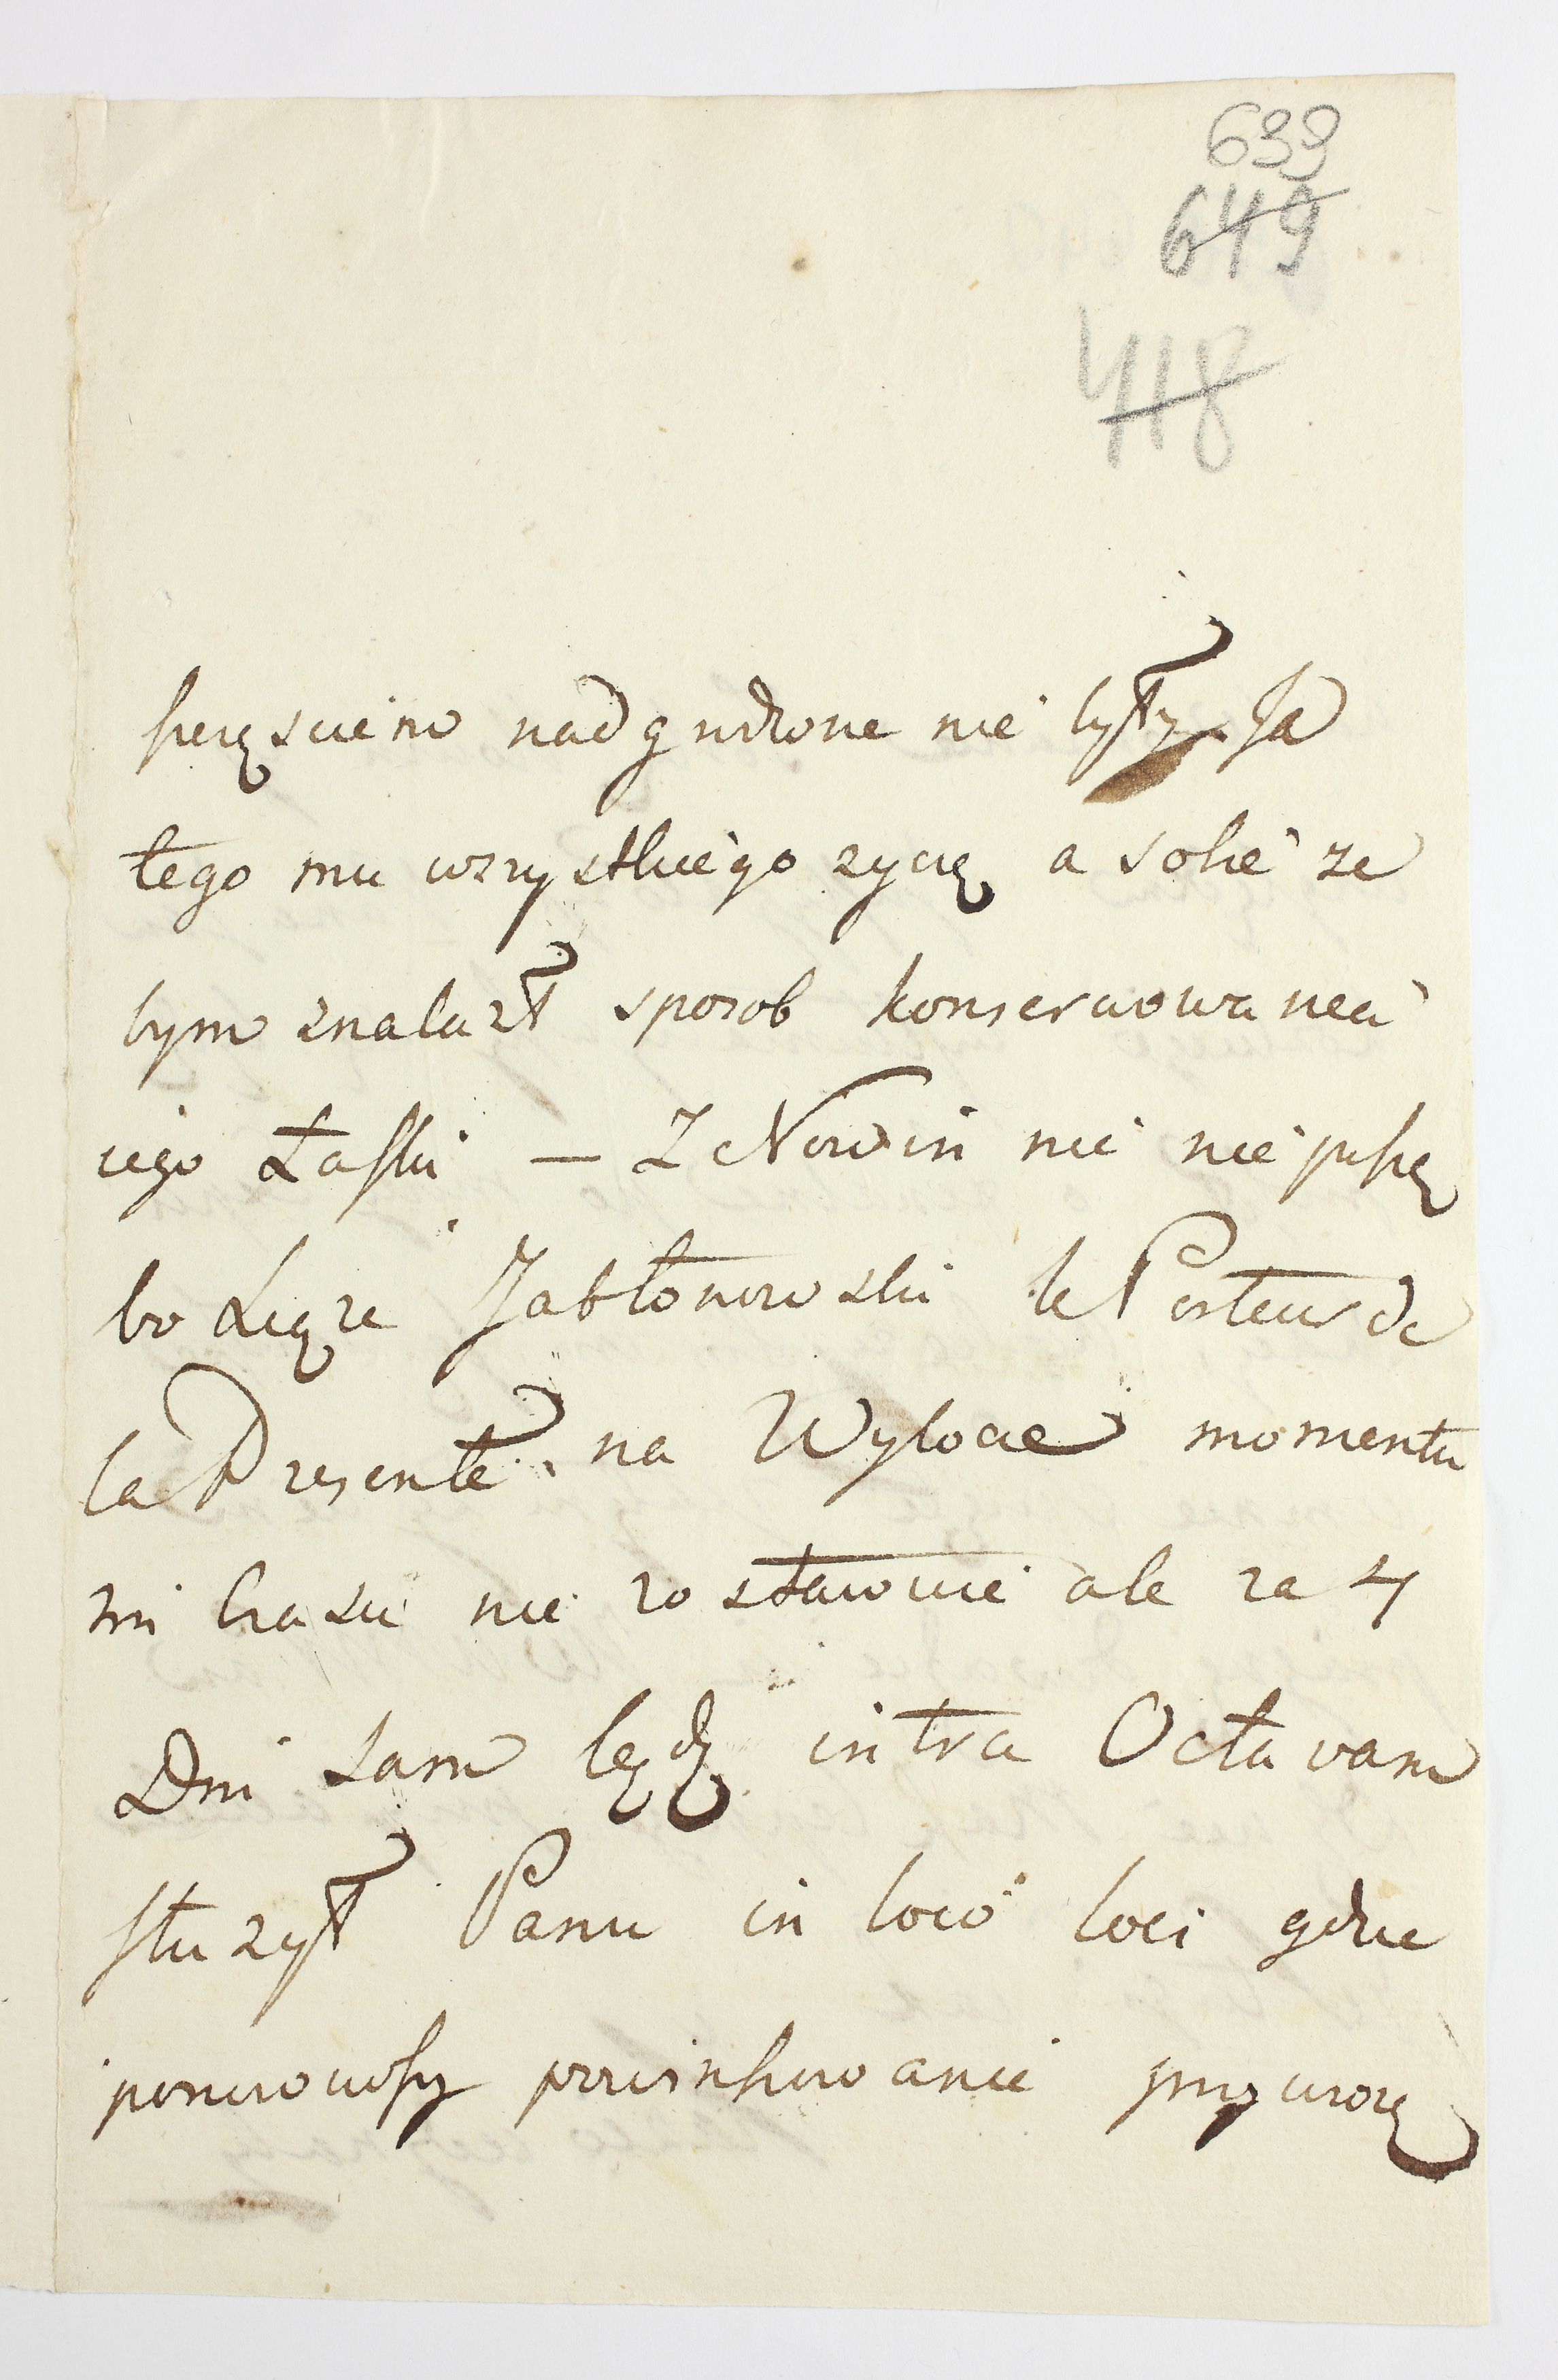 639
649
418
szczęsciem nadgrodzone nie byly. Ja
tego mu wszystkiego zycię a sobie ze
bym znalazł sposob konserwowania
iego Łaski — Z Nowin nic nie piszę
bo Xiąze Jabłonowski le Porteur de
la Presente na Wylocie momentu
mi czasu nie zostawuie ale za 4
Dni sam będę intra Octavam
słuzył Panu in loco loci gdzie
ponowiwszy powinszowanie